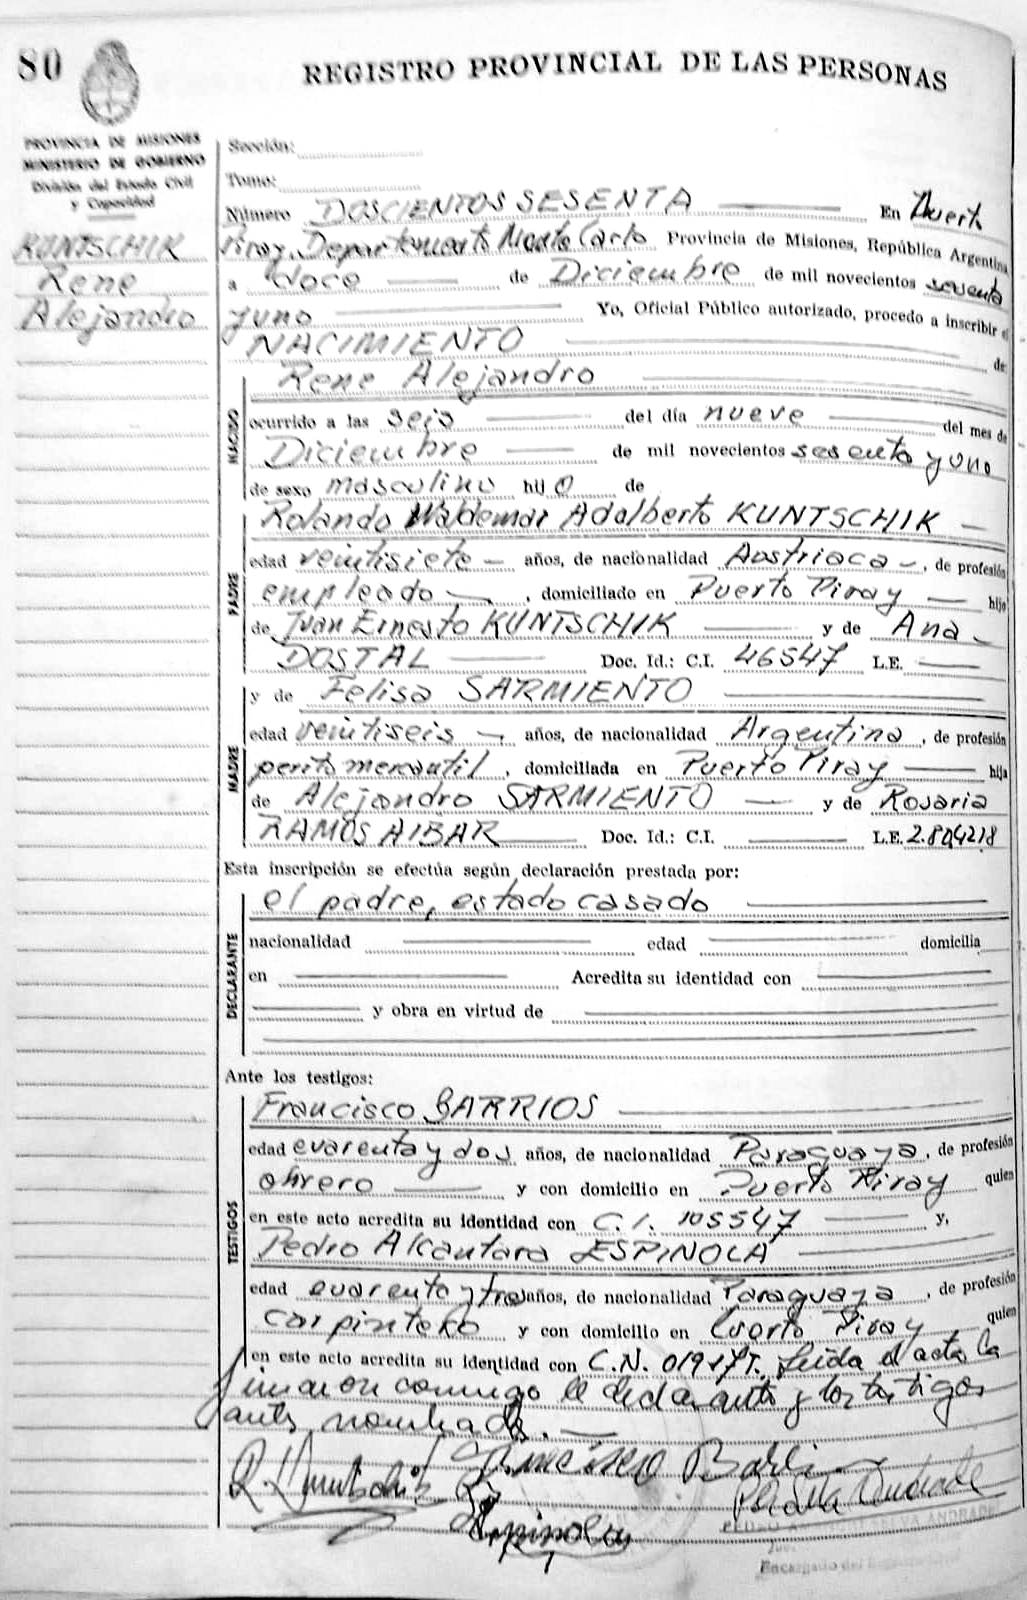 80
REGISTRO PROVINCIAL DE LAS PERSONAS
PROVINCIA DE MISIONES
MINISTERIO DE GOBIERNO
División del Estado Civil
y Capacidad
KUNTSCHIK
Rene
Alejandro
Sección:
Tomo:
Número DOSCIENTOS SESENTA En Puerto
Piray, Departamento Monte Carlo Provincia de Misiones, República Argentina
a doce de Diciembre de mil novecientos sesenta
y uno Yo, Oficial Público autorizado, procedo a inscribir el
NACIMIENTO de
Rene Alejandro
NACIDO
ocurrido a las seis del día nueve del mes de
Diciembre de mil novecientos sesenta y uno
de sexo masculino hijo de
PADRE
Rolando Waldemar Adalberto KUNTSCHIK
edad veintisiete años, de nacionalidad Austriaca, de profesión
empleado, domiciliado en Puerto Piray hijo
de Juan Ernesto KUNTSCHIK y de Ana
DOSTAL Doc. Id.: C.I. 46547 L.E.
MADRE
y de Felisa SARMIENTO
edad veintiseis años, de nacionalidad Argentina, de profesión
perito mercantil, domiciliada en Puerto Piray hija
de Alejandro SARMIENTO y de Rosaria
RAMOS AIBAR Doc. Id.: C.I. L.E. 2.804218
Esta inscripción se efectúa según declaración prestada por:
DECLARANTE
el padre, estado casado
nacionalidad edad domicilia
en Acredita su identidad con
y obra en virtud de
Ante los testigos:
TESTIGOS
Francisco BARRIOS
edad cuarenta y dos años, de nacionalidad Paraguaya, de profesión
obrero y con domicilio en Puerto Piray quien
en este acto acredita su identidad con C.I. 105547 y,
Pedro Alcantara ESPINOLA
edad cuarenta y tres años, de nacionalidad Paraguaya, de profesión
carpintero y con domicilio en Puerto Piray quien
en este acto acredita su identidad con C.N. Leida el acta la
firmaron conmigo el declarante y los testigos
antes nombrados.
Francisco Barrios
Espinola
ANDRADE
Encargado del